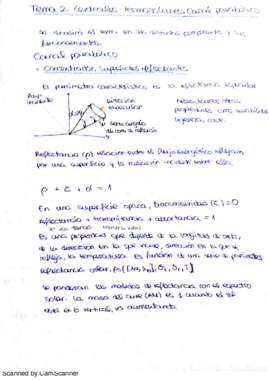 Tema 2. Centrales termosolares. Canal parabólico
Se dividirá el tema en sus distintos componentes y sus
funcionamientos.
Canal parabólico
• Concentrador. Superficies reflectantes
El parámetro característico es la reflectancia especular
Rayo
incidente
dirección
especular
zona angular
de cono de reflexión
Necesitamos otras
propiedades como durabilidad,
ligereza, coste.
Reflectancia (ρ) relación entre el flujo energético reflejado
por una superficie y la radiación incidente sobre ella.
ρ + τ + α = 1
En una superficie opaca, transmisividad (τ) = 0
reflectancia + transmitancia + absortancia = 1
Es una propiedad que depende de la longitud de onda,
de la dirección en la que incide, dirección en la que se
refleja, la temperatura. Es función de una serie de parámetros
reflectancia solar,
Se ponderan las medidas de reflectancia con el espectro
solar. La masa de aire (AM) es 1 cuando el sol
está en la vertical, va aumentando.
Scanned by CamScanner